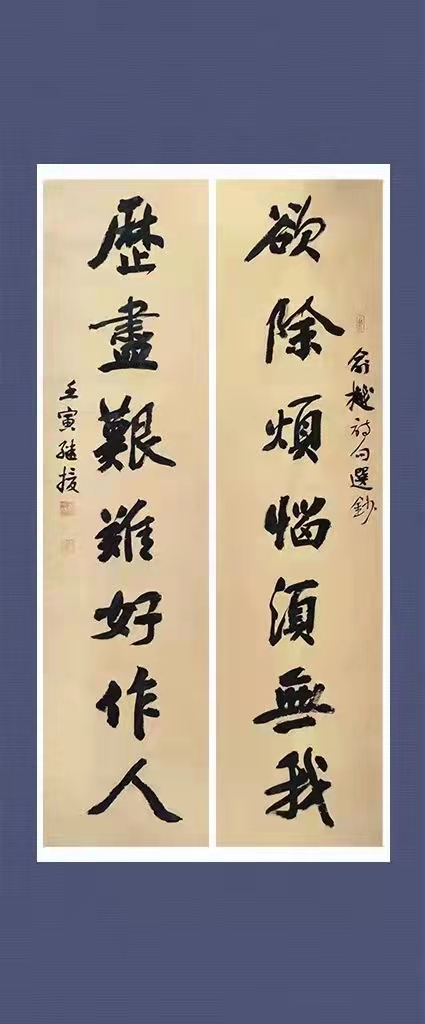 俞樾詩句選鈔
欲除煩惱須無我
歷盡艱難好作人
壬寅繼援